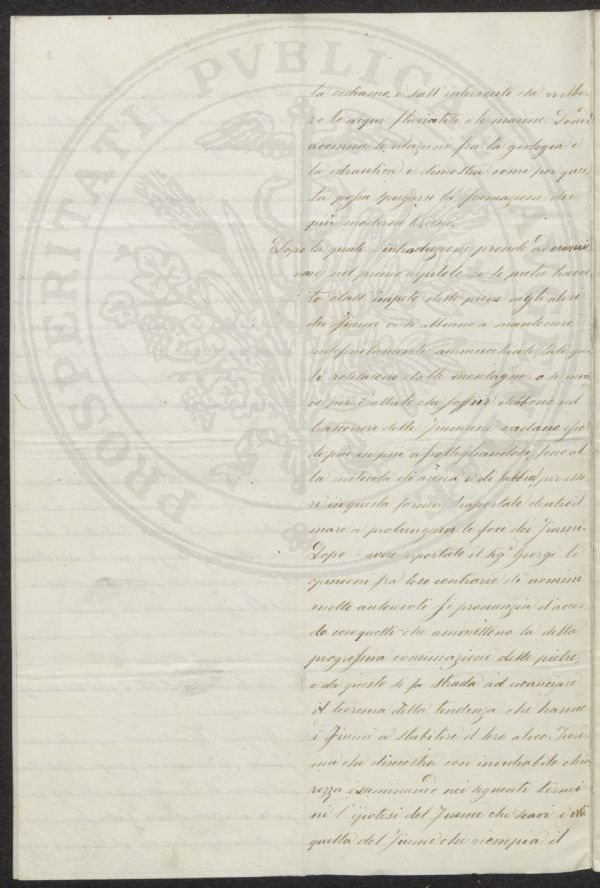 la vediamo, e sull' intervento che ebbe-
ro le acque fluviatili e le marine. Dond'
accenna le relazioni fra la geologia e
la idraulica e dimostra come per que-
sta possa spiegarsi la formazione dei
più moderni terreni.
Dopo la quale introduzione prende ad esami
nare nel primo capitolo se le pietre traver
te dall' impeto delle piene negli alvei
dei Fiumi vi si abbiano a mantenere
indefinitamente ammucchiate tali qua-
li rotolarono dalle montagne: o se in
vece per l'attrito che soffrir debbono nel
trascorrere delle fiumane vadano
di più in più assottigliandosi fino al
la molecola di arena e di sabbia per esse
re in questa forma trasportate dentro il
mare a prolungarvi le foce dei Fiumi.
Dopo avere riportate il Sig.r Giorgi le
opinioni fra loro contrarie di uomini
molto autorevoli si pronunzia d'accor-
do con quelli che ammettono la detta
progressiva consumazione delle pietre,
e da questo si fa strada ad enunciare
il teorema della tendenza che hanno
i Fiumi a stabilire il loro alveo. Teore-
ma che dimostra con invidiabile chia-
rezza esaminando nei seguenti termi
ni l'ipotesi del Fiume che scavi e
quella del Fiume che riempia il
PROSPERITATI PVBLICAE